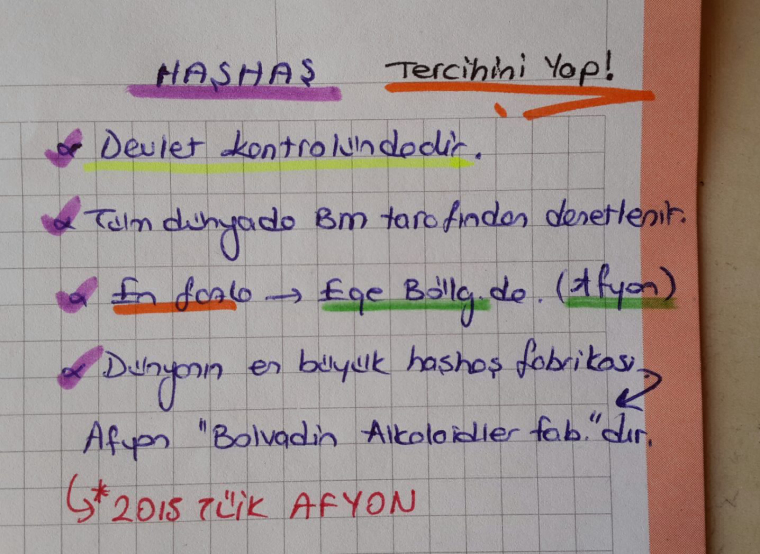 HAŞHAŞ Tercihini Yap!
Devlet kontrolündedir.
Tüm dünyada BM tarafından denetlenir.
En fazla → Ege Böllg.de. (Afyon)
Dünyanın en büyük haşhaş fabrikası
Afyon "Bolvadin Alkoloidler fab."dır.
*2015 TÜİK AFYON